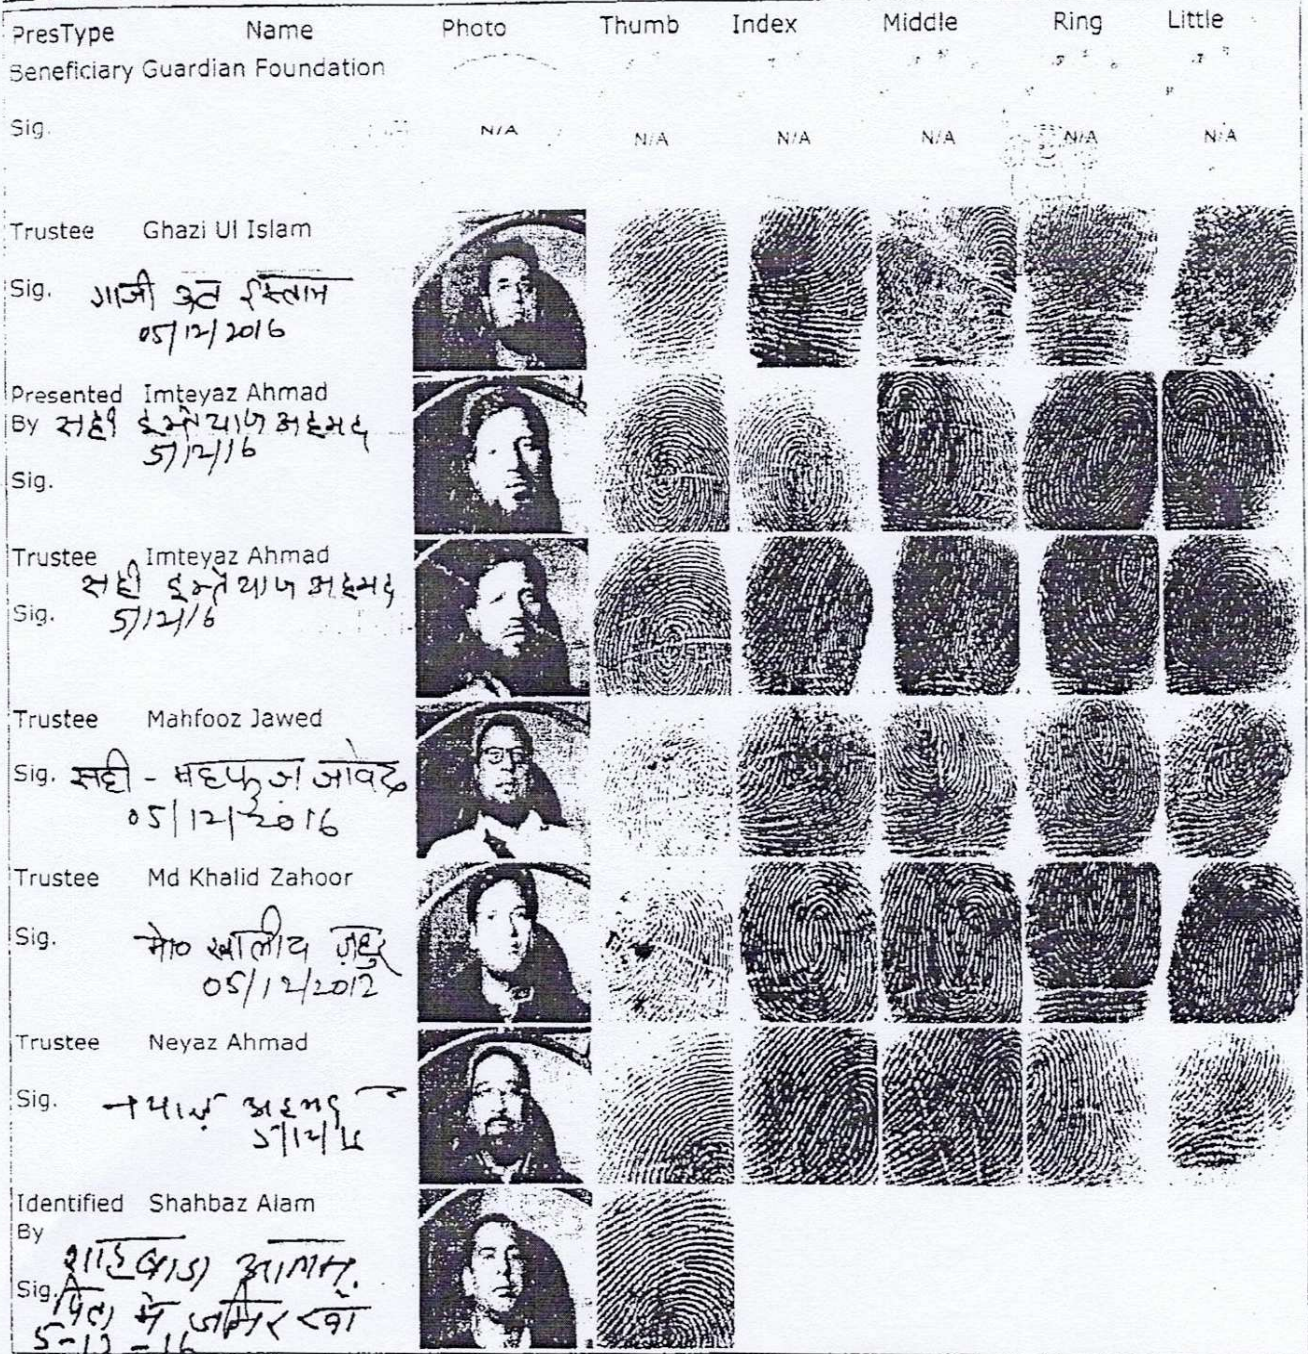 PresType Name Photo Thumb Index Middle Ring Little
Beneficiary Guardian Foundation
Sig. N/A N/A N/A N/A N/A N/A
Trustee Ghazi Ul Islam
Sig. गाजी उल ईस्लाम
05/12/2016
Presented Imteyaz Ahmad
By सही इम्तेयाज अहमद
5/12/16
Sig.
Trustee Imteyaz Ahmad
सही इम्तेयाज अहमद
Sig. 5/12/16
Trustee Mahfooz Jawed
Sig. सही - महफुज जावेद
05/12/2016
Trustee Md Khalid Zahoor
Sig. मो० खालीद ज़हुर
05/12/2012
Trustee Neyaz Ahmad
Sig. नयाज़ अहमद
5/12/16
Identified Shahbaz Alam
By
शाहबाज आलम
Sig. पिता
5-12-16